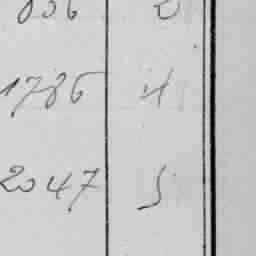 836 2
1786 4
2047 5